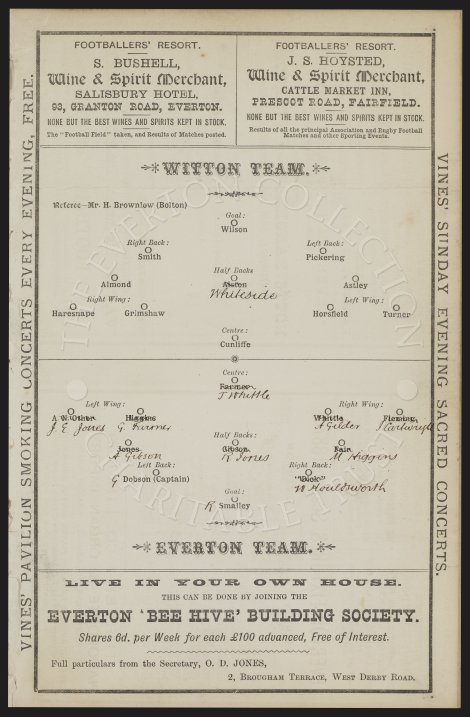 FOOTBALLERS' RESORT.
S. BUSHELL,
Wine & Spirit Merchant,
SALISBURY HOTEL,
93, GRANTON ROAD, EVERTON.
NONE BUT THE BEST WINES AND SPIRITS KEPT IN STOCK.
The "Football Field" taken, and Results of Matches posted.
FOOTBALLERS' RESORT.
J. S. HOYSTED,
Wine & Spirit Merchant,
CATTLE MARKET INN,
PRESCOT ROAD, FAIRFIELD.
NONE BUT THE BEST WINES AND SPIRITS KEPT IN STOCK.
Results of all the principal Association and Rugby Football
Matches and other Sporting Events.
VINES' PAVILION SMOKING CONCERTS EVERY EVENING, FREE.
VINES' SUNDAY EVENING SACRED CONCERTS.
WITTON TEAM.
Referee—Mr. H. Brownlow (Bolton)
Goal:
Wilson
Right Back: Left Back:
Smith Pickering
Half Backs
Almond Aston Astley
Whiteside
Right Wing: Left Wing:
Haresnape Grimshaw Horsfield Turner
Centre:
Cunliffe
Centre:
Farmer
T Whittle
Left Wing: Right Wing:
A. N. Other Higgins Whittle Fleming
J E Jones G Farmer A Gilder J Cartwright
Half Backs:
Jones Gibson Fair
A Gibson R Jones M Higgins
Left Back: Right Back:
G Dobson (Captain) "Dick"
W Houldsworth
Goal:
R Smalley
EVERTON TEAM.
LIVE IN YOUR OWN HOUSE.
THIS CAN BE DONE BY JOINING THE
EVERTON 'BEE HIVE' BUILDING SOCIETY.
Shares 6d. per Week for each £100 advanced, Free of Interest.
Full particulars from the Secretary, O. D. JONES,
2, BROUGHAM TERRACE, WEST DERBY ROAD.
THE EVERTON COLLECTION
CHARITABLE TRUST